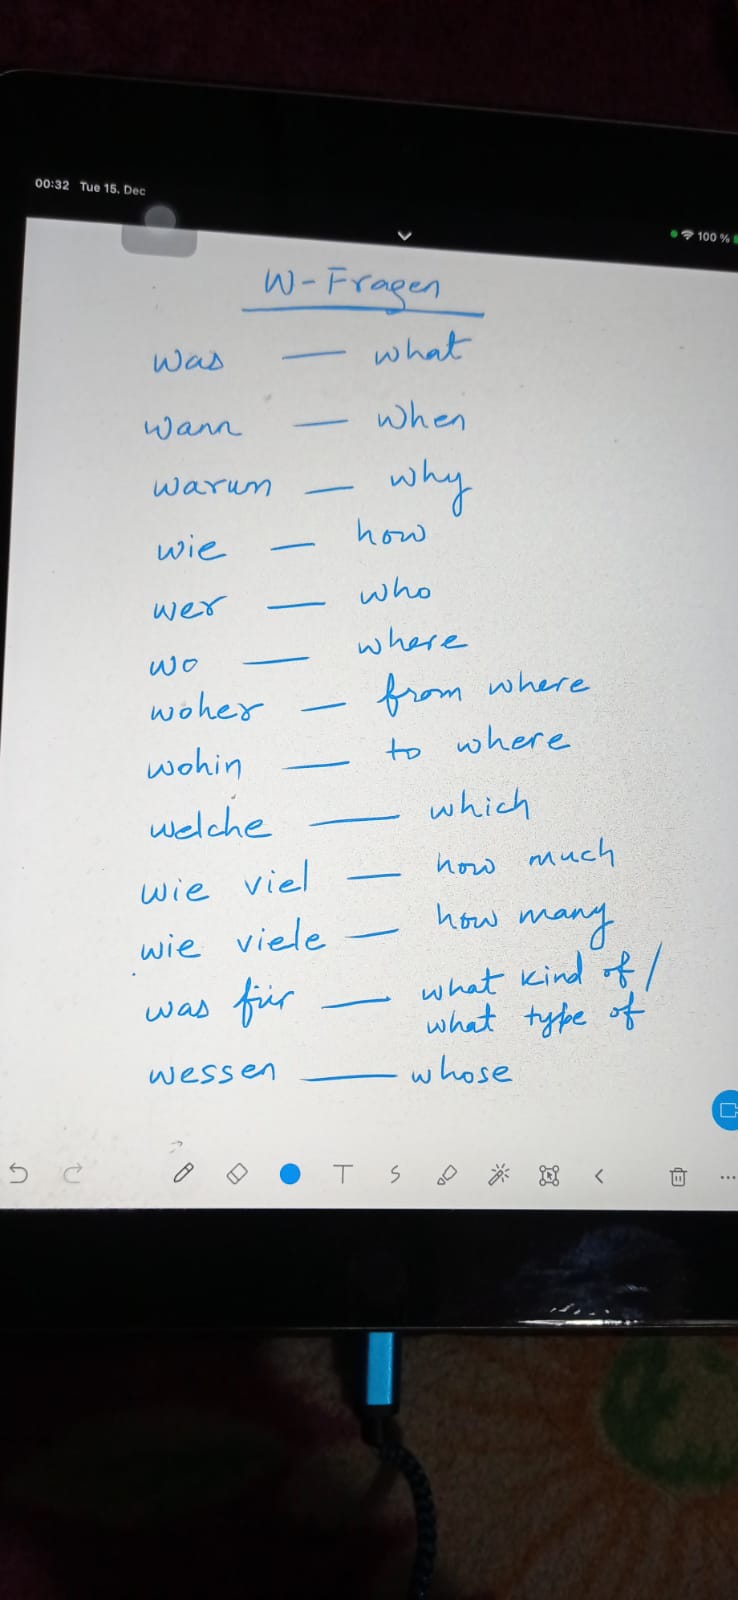 00:32 Tue 15. Dec
100 %
W-Fragen
was — what
wann — when
warum — why
wie — how
wer — who
wo — where
woher — from where
wohin — to where
welche — which
wie viel — how much
wie viele — how many
was für — what kind of /
what type of
wessen — whose
T